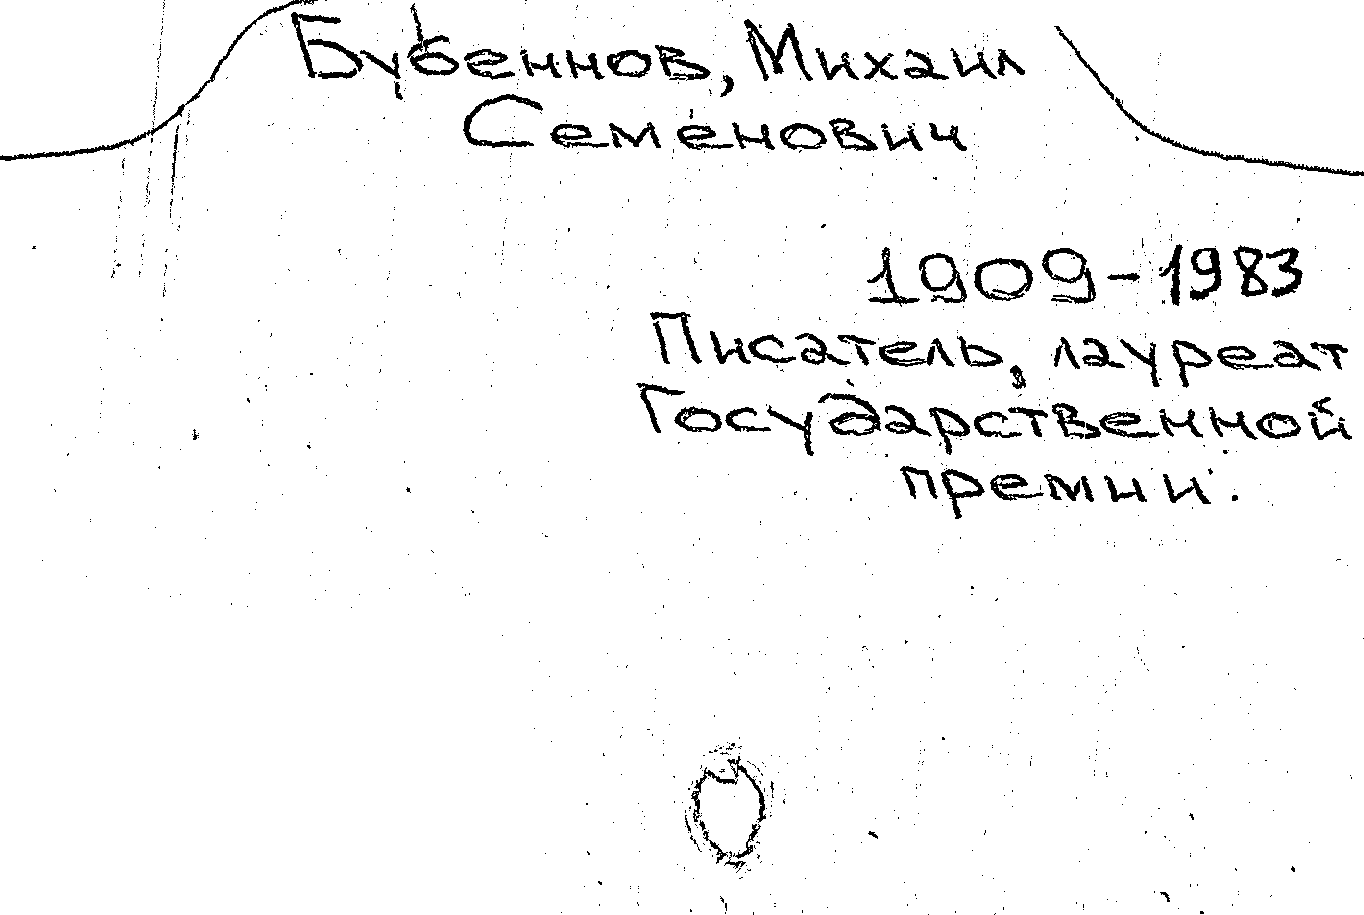 Бубеннов, Михаил
Семенович
1909-1983
Писатель, лауреат
Государственной
премии.